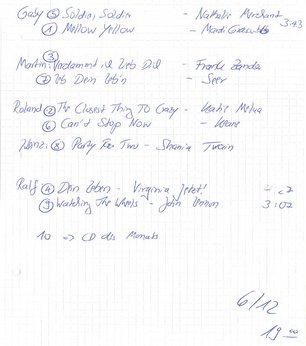 Gaby ⑤ Soldier, Soldier - Nathalie Merchant 3:43
① Mellow Yellow -
Martin: ③ Verdammt i lieb Di - Frank Zander
⑦ Leb Dein Leb'n - Seer
Roland ② The Closest Thing To Crazy - Katie Melua
⑥ Can't Stop Now - Keane
Heinzi: ⑧ Party For Two - Shania Twain
Ralf ④ Dein Leben - Virginia Jetzt!
⑨ Watching The Wheels - John Lennon 3:02
10 => CD des Monats
6/12
19 00